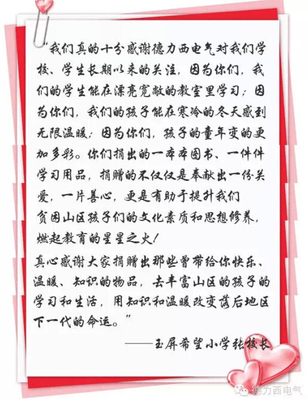 “我们真的十分感谢德力西电气对我们学
校、学生长期以来的关注，因为你们，我
们的学生能在漂亮宽敞的教室里学习；因
为你们，我们的孩子能在寒冷的冬天感到
无限温暖；因为你们，孩子的童年变的更
加多彩。你们捐出的一本本图书、一件件
学习用品，捐赠的不仅仅是奉献出一份关
爱，一片善心，更是有助于提升我们
贫困山区孩子们的文化素质和思想修养，
燃起教育的星星之火！
真心感谢大家捐赠出那些曾带给你快乐、
温暖、知识的物品，去丰富山区的孩子的
学习和生活，用知识和温暖改变落后地区
下一代的命运。”
——玉屏希望小学张校长
德力西电气